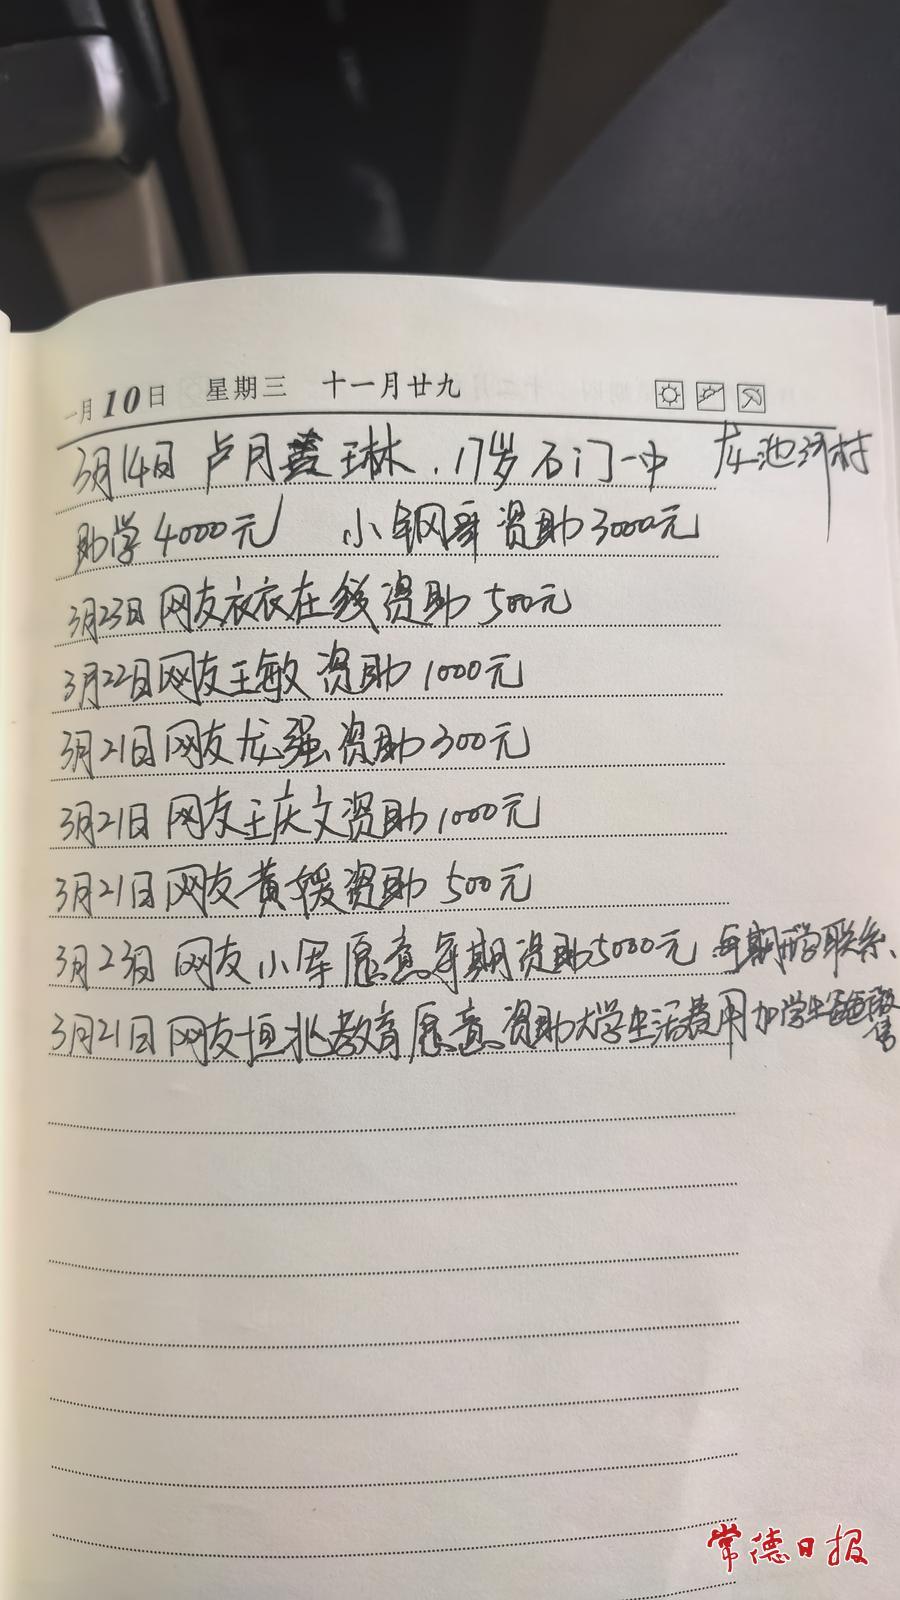 一月10日 星期三 十一月廿九
3月14日 卢月 琳.17岁 石门一中 龙池河村
助学4000元 小钢哥资助3000元
3月23日 网友衣衣在线资助 500元
3月22日网友王敏 资助 1000元
3月21日网友龙强资助300元
3月21日 网友王庆文资助1000元
3月21日网友黄媛资助 500元
3月23日 网友小军愿意每期资助5000元 每期 联系、
3月21日 网友恒兆教育愿意资助大学生活费用 加学生
常德日报